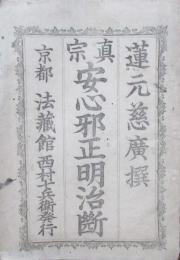 蓮元慈廣撰
真宗安心邪正明治斷
京都 法藏館 西村七兵衛發行